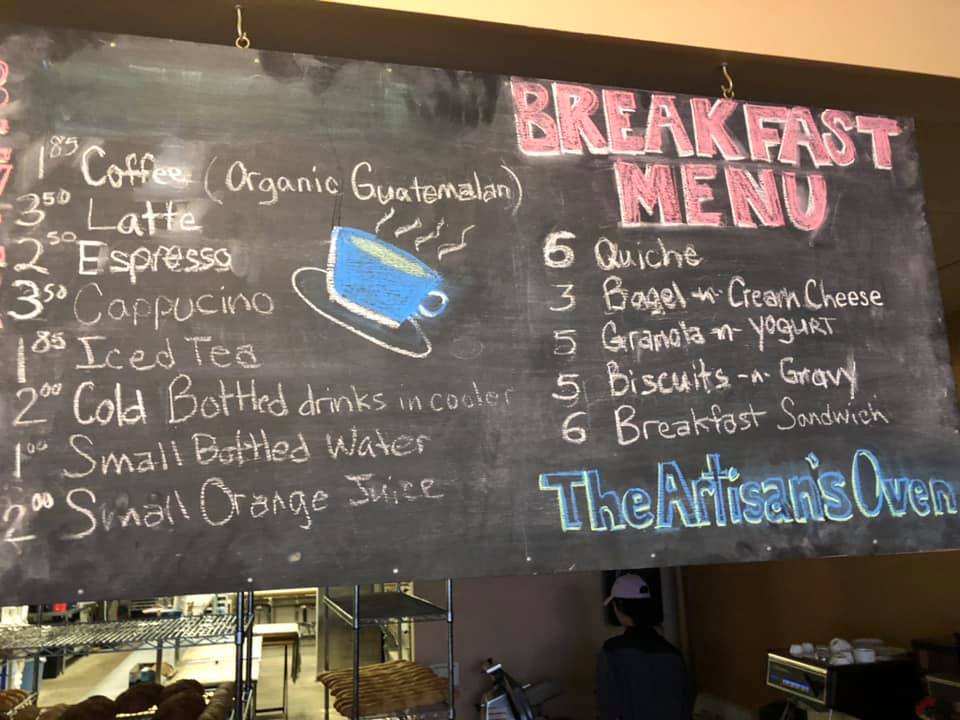 1.85 Coffee (Organic Guatemalan)
3.50 Latte
2.50 Espresso
3.50 Cappucino
1.85 Iced Tea
2.00 Cold Bottled drinks in cooler
1.00 Small Bottled Water
2.00 Small Orange Juice
BREAKFAST
MENU
6 Quiche
3 Bagel -n- Cream Cheese
5 Granola -n- YOGURT
5 Biscuits -n- Gravy
6 Breakfast Sandwich
The Artisan's Oven